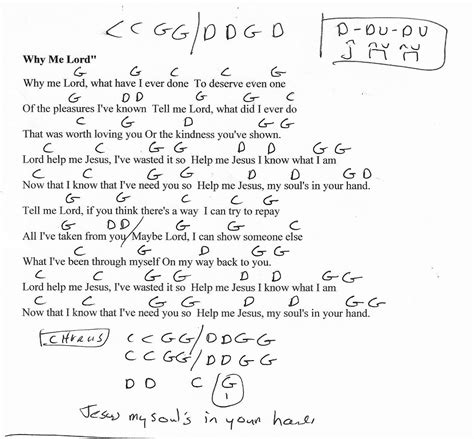 C C G G / D D G D
D - DU - DU
Why Me Lord"
G G C C G
Why me Lord, what have I ever done To deserve even one
G D D G G C
Of the pleasures I've known Tell me Lord, what did I ever do
C G D G G
That was worth loving you Or the kindness you've shown.
C C G G D D G G
Lord help me Jesus, I've wasted it so Help me Jesus I know what I am
C C G G D D G D
Now that I know that I've need you so Help me Jesus, my soul's in your hand.
G G C C G
Tell me Lord, if you think there's a way I can try to repay
G D D / G G C
All I've taken from you Maybe Lord, I can show someone else
C G D G G
What I've been through myself On my way back to you.
C C G G D D G G
Lord help me Jesus, I've wasted it so Help me Jesus I know what I am
C C G G D D G G
Now that I know that I've need you so Help me Jesus, my soul's in your hand.
CHORUS C C G G / D D G G
C C G G / D D G G
D D C G
1
Jesus my soul's in your hand